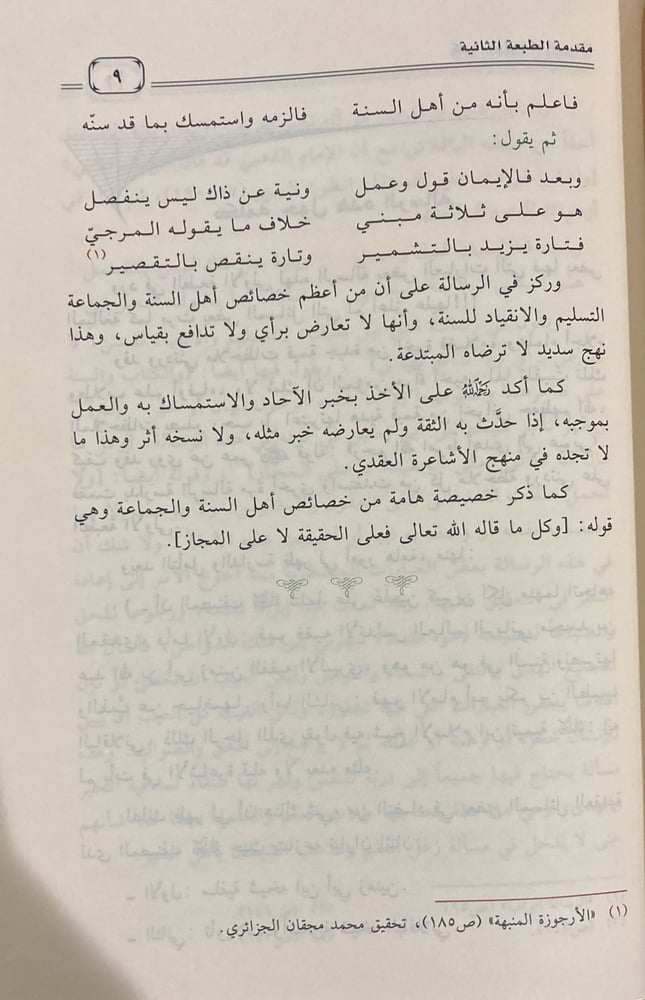 مقدمة الطبعة الثانية
٩
فاعلم بأنه من أهل السنة فالزمه واستمسك بما قد سنّه
ثم يقول:
وبعد فالإيمان قول وعمل ونية عن ذاك ليس ينفصل
هو على ثلاثة مبني خلاف ما يقوله المرجيّ
فتارة يزيد بالتشمير وتارة ينقص بالتقصير(١)
وركز في الرسالة على أن من أعظم خصائص أهل السنة والجماعة
التسليم والانقياد للسنة، وأنها لا تعارض برأي ولا تدافع بقياس، وهذا
نهج سديد لا ترضاه المبتدعة.
كما أكد رحمه الله على الأخذ بخبر الآحاد والاستمساك به والعمل
بموجبه، إذا حدَّث به الثقة ولم يعارضه خبر مثله، ولا نسخه أثر وهذا ما
لا تجده في منهج الأشاعرة العقدي.
كما ذكر خصيصة هامة من خصائص أهل السنة والجماعة وهي
قوله: [وكل ما قاله الله تعالى فعلى الحقيقة لا على المجاز].
(١) «الأرجوزة المنبهة» (ص١٨٥)، تحقيق محمد مجقان الجزائري.